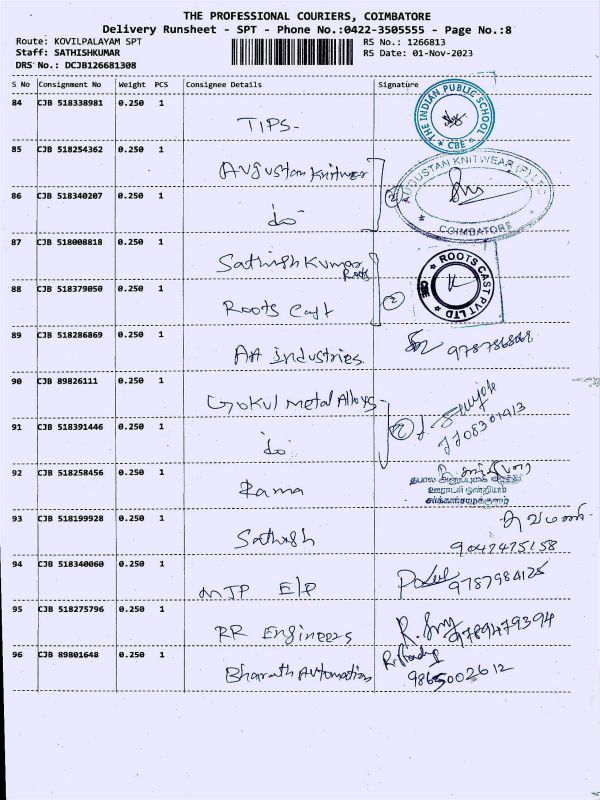 THE PROFESSIONAL COURIERS, COIMBATORE
Delivery Runsheet - SPT - Phone No.:0422-3505555 - Page No.:8
Route: KOVILPALAYAM SPT RS No.: 1266813
Staff: SATHISHKUMAR RS Date: 01-Nov-2023
DRS No.: DCJB126681308
S No Consignment No Weight PCS Consignee Details Signature
84 CJB 518338981 0.250 1
TIPS-
THE INDIAN PUBLIC SCHOOL * CBE *
85 CJB 518254362 0.250 1
Augustan Knitwear
AUGUSTAN KNITWEAR (P) LTD
COIMBATORE
86 CJB 518340207 0.250 1
do
87 CJB 518008818 0.250 1
Sathish Kumar
Roots
88 CJB 518379050 0.250 1
Roots Cast
ROOTS CAST PVT LTD * CBE *
89 CJB 518286869 0.250 1
Art Industries
90 CJB 89826111 0.250 1
Gokul Metal Alloys
91 CJB 518391446 0.250 1
do
92 CJB 518258456 0.250 1
Rama
ஊராட்சி ஒன்றியம்
சர்க்கார்சாமக்குளம்
93 CJB 518199928 0.250 1
Sathish
9047475158
94 CJB 518340060 0.250 1
MJP E/P
9787984125
95 CJB 518275796 0.250 1
RR Engineers
9789479394
96 CJB 89801648 0.250 1
Bharath Automation
9865002612